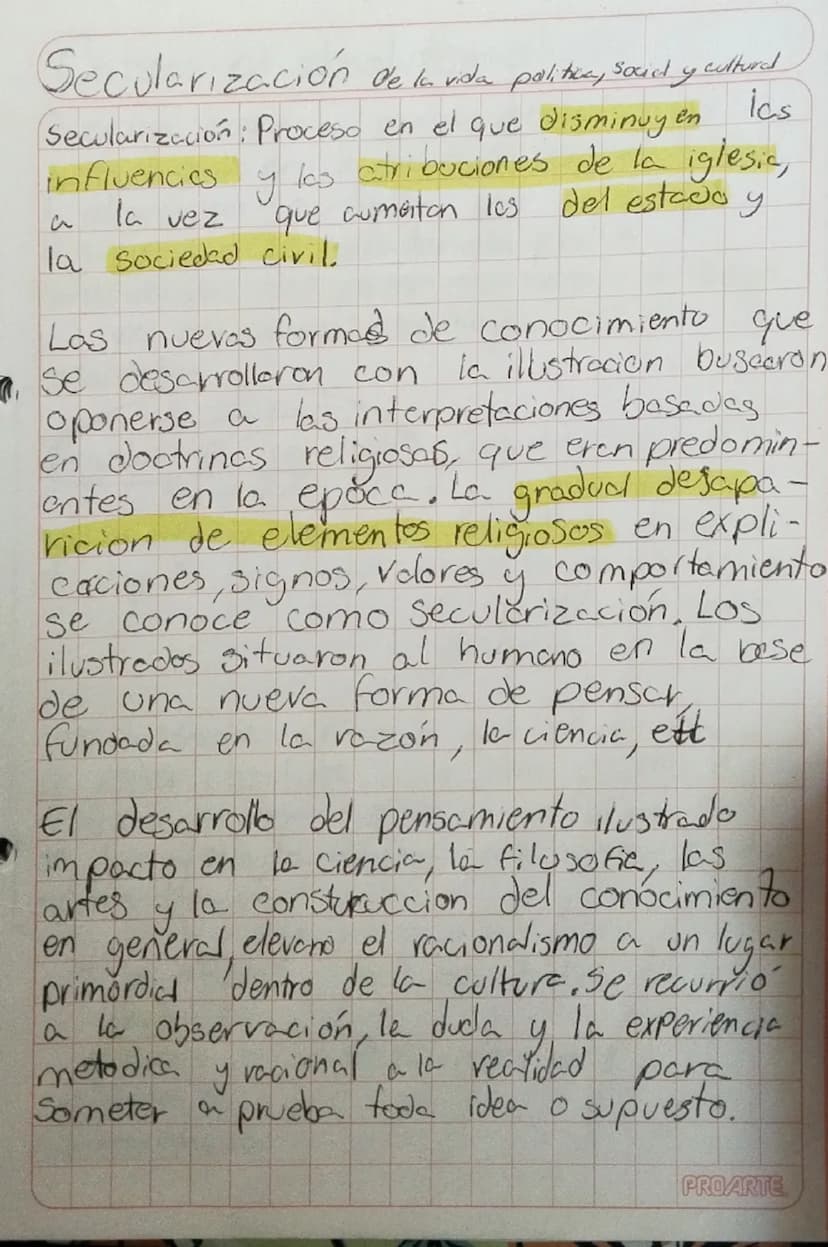 Secularización de la vida politica, social y cultural
secularización: Proceso en el que disminuyen las
influencias y las atribuciones de la iglesia,
a la vez que aumentan las del estado y
la sociedad civil.
Las nuevas formas de conocimiento que
se desarrollaron con la illustracion buscaron
oponerse a las interpretaciones basadas
en doctrinas religiosas, que eran predomin-
antes en la epoca. La gradual desapa-
ricion de elementos religiosos en expli-
caciones, signos, valores y comportamiento
se conoce como secularización. Los
ilustrados situaron al humano en la base
de una nueva forma de pensar,
fundada en la razón, la ciencia, ett
El desarrollo del pensamiento ilustrado
impacto en la ciencia, la filosofia, las
artes y la construccion del conocimiento
en general, elevano el racionalismo a un lugar
primordial dentro de la cultura. Se recurrió
a la observación, la duda y la experiencia
metodica y racional a la realidad para
someter a prueba toda idea o supuesto.
PROARTE